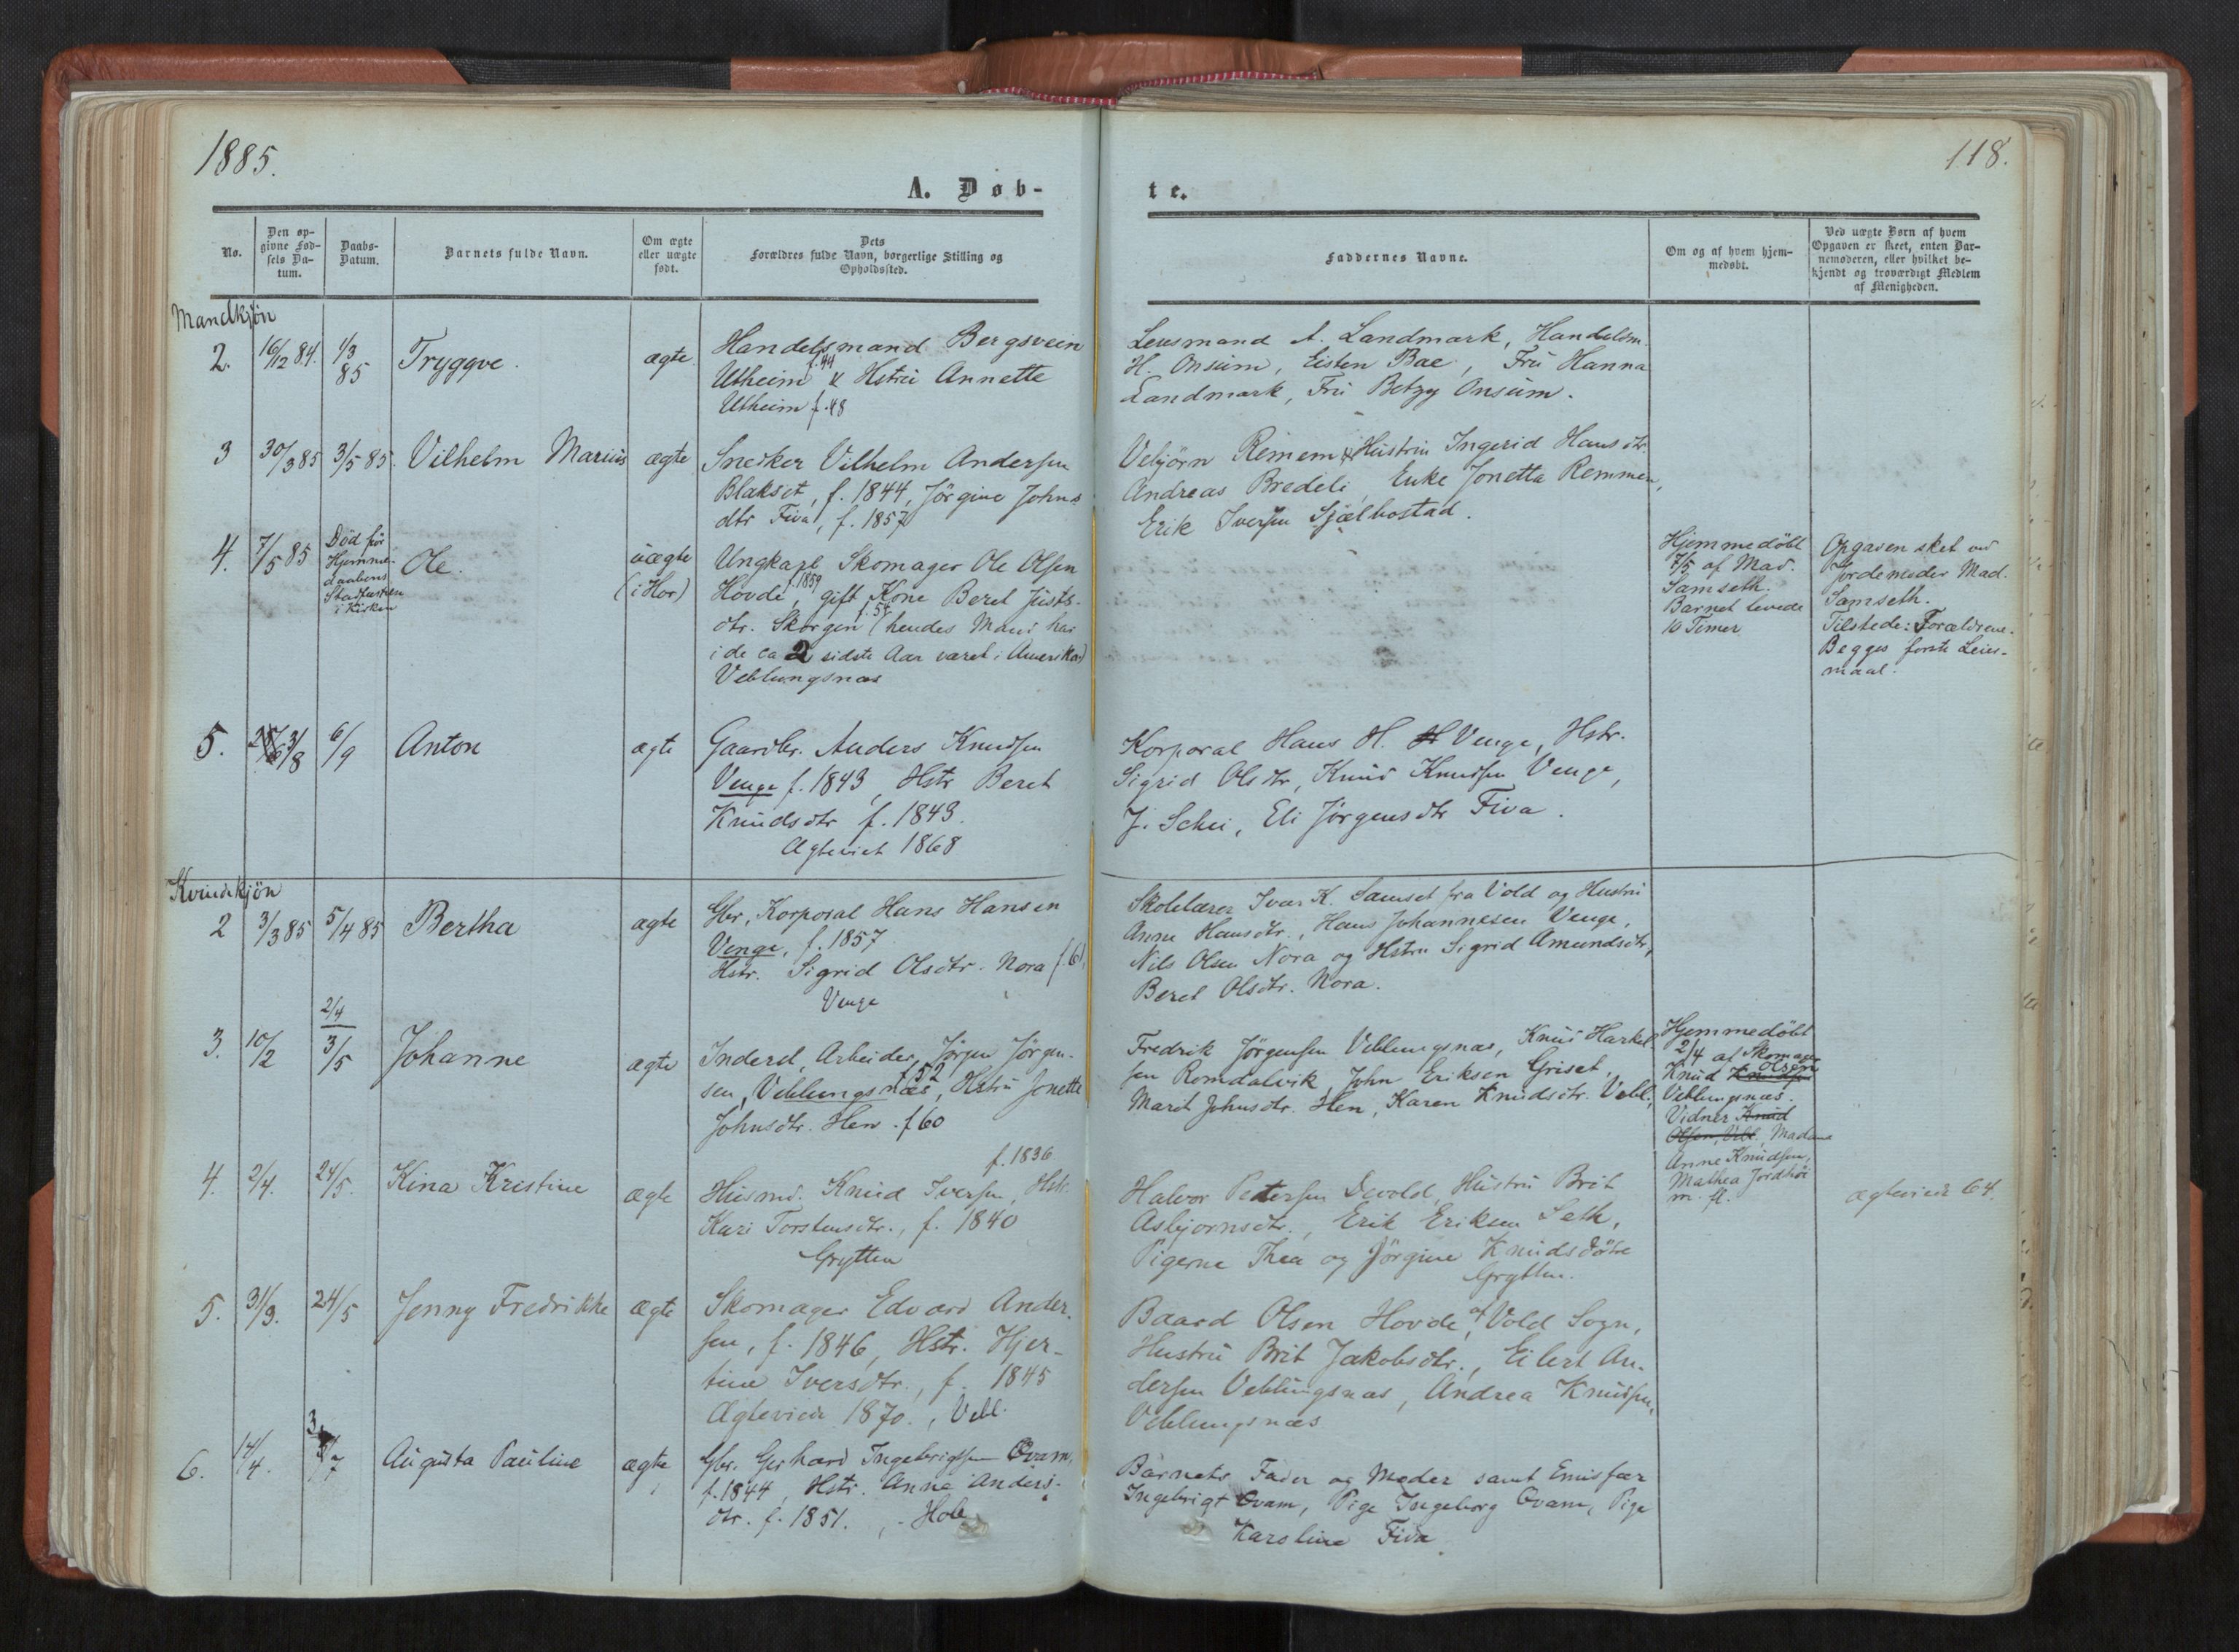 1885.
118.
A. Døb-
te.
No.
Den op-
givne Fød-
sels Da-
tum.
Daabs-
Datum.
Barnets fulde Navn.
Om ægte
eller uægte
født.
Dets
Forældres fulde Navn, borgerlige Stilling og
Opholdssted.
Faddernes Navne.
Om og af hvem hjem-
medøbt.
Ved uægte Børn af hvem
Opgaven er skeet, enten Bar-
nemoderen, eller hvilket be-
kjendt og troværdigt Medlem
af Menigheden.
Mandkjøn
2. 16/12 84. 1/3 85 Tryggve. ægte.
Handelsmand Bergsvein
Utheim f. 44 & Hstru Annette
Utheim f. 48
Lensmand A. Landmark, Handelsm.
H. Onsum, Eisten Bae, Fru Hanna
Landmark, Fru Betzy Onsum.
3 30/3 85 3/5 85. Vilhelm Marius ægte
Snedker Vilhelm Andersen
Blakset, f. 1844, Jørgine Johns
dtr Fiva, f. 1857
Vebjörn Remem & Hustru Ingerid Hansdtr.
Andreas Bredeli, Enke Jonetta Remmem,
Erik Iversen Sjælbostad.
4. 7/5 85
Död för
Hjemme-
daabens
Stadfæstelse
i Kirken
Ole.
uægte
(i Hor)
Ungkarl Skomager Ole Olsen
Hovde, f. 1859 gift Kone Beret Justs-
dtr. Skorgen f. 54 (hendes Mand har
i de ca 2 sidste Aar været i Amerika)
Veblungsnæs
Hjemmedöbt
7/5 af Mad.
Samseth.
Barnet levede
10 Timer
Opgaven sket ved
Jordemoder Mad.
Samseth.
Tilstede: Forældrene.
Begges første Leier-
maal.
5. 3/8 6/9 Anton ægte
Gaardbr. Anders Knudsen
Venge f. 1843, Hstr Beret
Knudsdtr f. 1843.
Ægteviet 1868
Korporal Hans H. Venge, Hstr.
Sigrid Olsdtr, Knud Knudsen Venge,
J. Schei, Eli Jörgensdtr Fiva.
Kvindekjön
2 3/3 85 5/4 85 Bertha ægte
Gbr, Korporal Hans Hansen
Venge, f. 1857
Hstr. Sigrid Olsdtr. Nora f. 61,
Venge
Skolelærer Ivar K. Samset fra Vold og Hustru
Anne Hansdtr., Hans Johannesen Venge,
Nils Olsen Nora og Hstru Sigrid Amundsdtr,
Beret Olsdtr. Nora.
3. 10/2 2/4 3/5 Johanne ægte
Inderst, Arbeider, Jörgen Jörgen-
sen, Veblungsnæs f 52, Hstru Jonette
Johnsdtr. Hen. f 60
Fredrik Jörgensen Veblungsnæs, Knud Harkel-
sen Romdalvik, John Eriksen Griset,
Marit Johnsdtr. Hen, Karen Knudsdtr. Vebl.
Hjemmedöbt
2/4 af Skomager
Knud Knudsen Olsen
Veblungsnæs.
Vidner Knud
Olsen, Vebl. Madame
Anne Knudsen,
Mathea Jordhöi
m. fl.
4. 2/4. 24/5. Kina Kristine ægte
Husmd. Knud Iversen, f. 1836 Hstr.
Kari Torstensdtr., f. 1840
Grytten
Halvor Petersen Devold, Hustru Brit
Asbjornsdtr., Erik Eriksen Seth,
Pigerne Thea og Jörgine Knudsdötre
Grytten.
ægteviede 64.
5. 31/3. 24/5 Jenny Fredrikke ægte
Skomager Edvard Ander-
sen, f. 1846, Hstr. Hjer-
tine Iversdtr., f. 1845
Ægteviede 1870., Vebl.
Baard Olsen Hovde, af Vold Sogn,
Hustru Brit Jakobsdtr., Eilert An-
dersen Veblungsnæs, Andrea Knudsen,
Veblungsnæs.
6. 14/4. 3/7 Augusta Pauline ægte
Gbr. Gerhard Ingebrigtsen Qvam,
f. 1844, Hstr. Anne Anders-
dtr. f. 1851., - Hole
Barnets Fader og Moder samt Emissær
Ingebrigt Qvam, Pige Ingeborg Qvam, Pige
Karoline Fiva